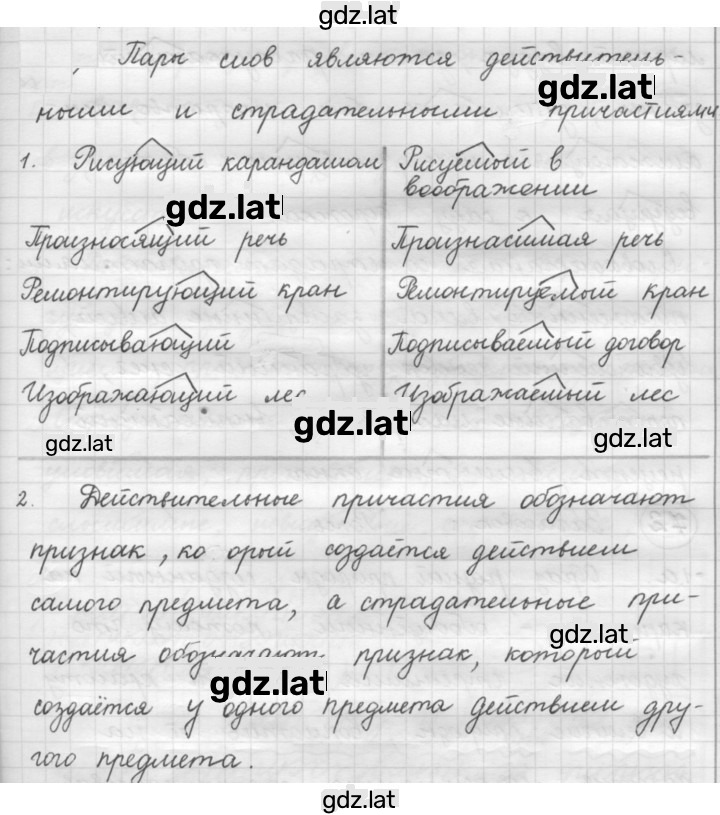 gdz.lat
Пары слов являются действитель-
gdz.lat
ными и страдательными причастиями
1. Рисующий карандашом Рисуемый в
воображении
gdz.lat
Произносящий речь Произнасимая речь
Ремонтирующий кран Ремонтируемый кран
Подписывающий Подписываемый договор
Изображающий лес Изображаемый лес
gdz.lat
gdz.lat gdz.lat
2. Действительные причастия обозначают
признак, ко орый создаётся действием
самого предмета, а страдательные при-
gdz.lat
частия обозначают признак, который
gdz.lat
создаётся у одного предмета действием дру-
гого предмета.
gdz.lat